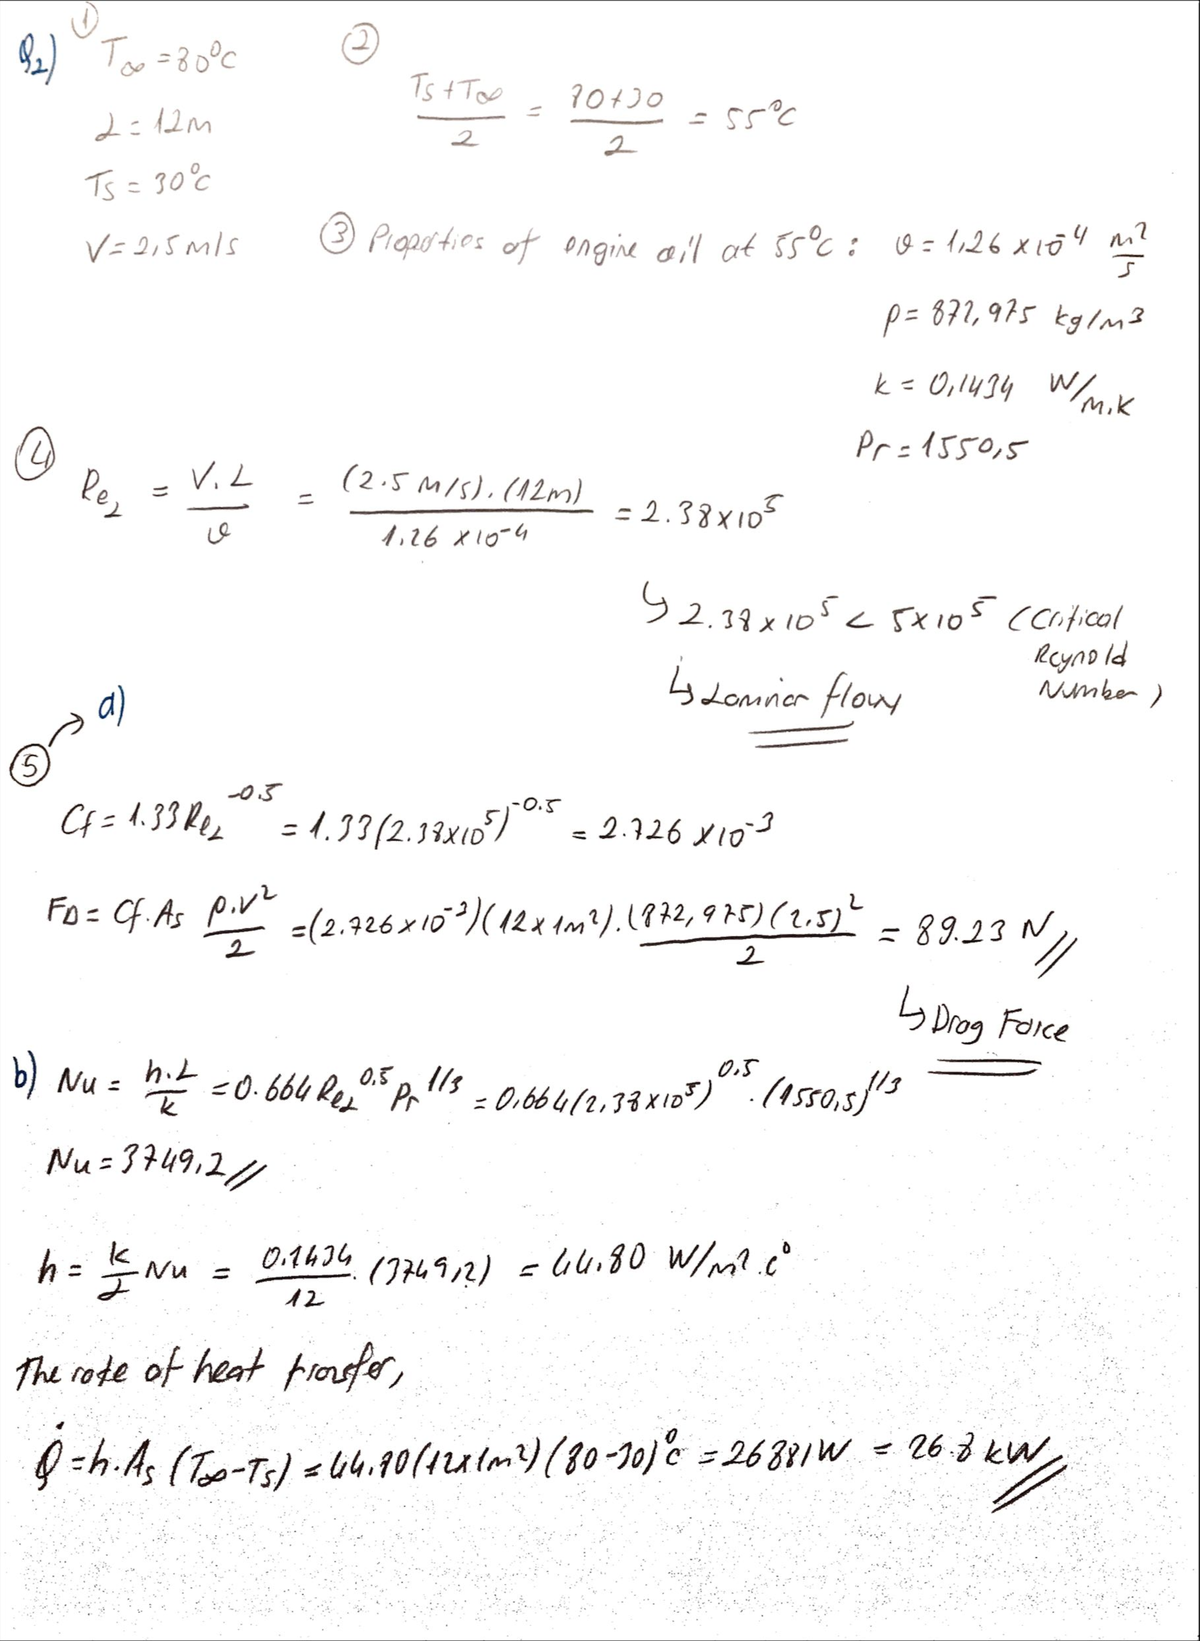 Q2) ① T∞ = 80°C
L = 12m
Ts = 30°C
V = 2,5 m/s
② (Ts + T∞)/2 = (80+30)/2 = 55°C
③ Properties of engine oil at 55°C : υ = 1,26 x 10^-4 m²/s
ρ = 872,975 kg/m³
k = 0,1434 W/m.K
Pr = 1550,5
④ Re_L = V.L/υ = (2.5 m/s).(12m)/1.26 x 10^-4 = 2.38 x 10^5
↳ 2.38 x 10^5 < 5x10^5 (Critical
Reynold
Number)
↳ Laminar flow
⑤ → a)
Cf = 1.33 Re_L^-0.5 = 1.33 (2.38x10^5)^-0.5 = 2.726 x10^-3
FD = Cf.As ρ.V²/2 = (2.726 x 10^-3)(12 x 1m²).(872,975)(2,5)²/2 = 89.23 N //
↳ Drag Force
b) Nu = h.L/k = 0.664 Re_L^0.5 Pr^1/3 = 0,664 (2,38x10^5)^0.5 . (1550,5)^1/3
Nu = 3749,2 //
h = k/L Nu = 0.1434/12 . (3749,2) = 44.80 W/m².C°
The rate of heat transfer,
Q̇ = h.As (T∞-Ts) = 44.80 (12x1m²) (80-30)°C = 26881W = 26.8 kW //